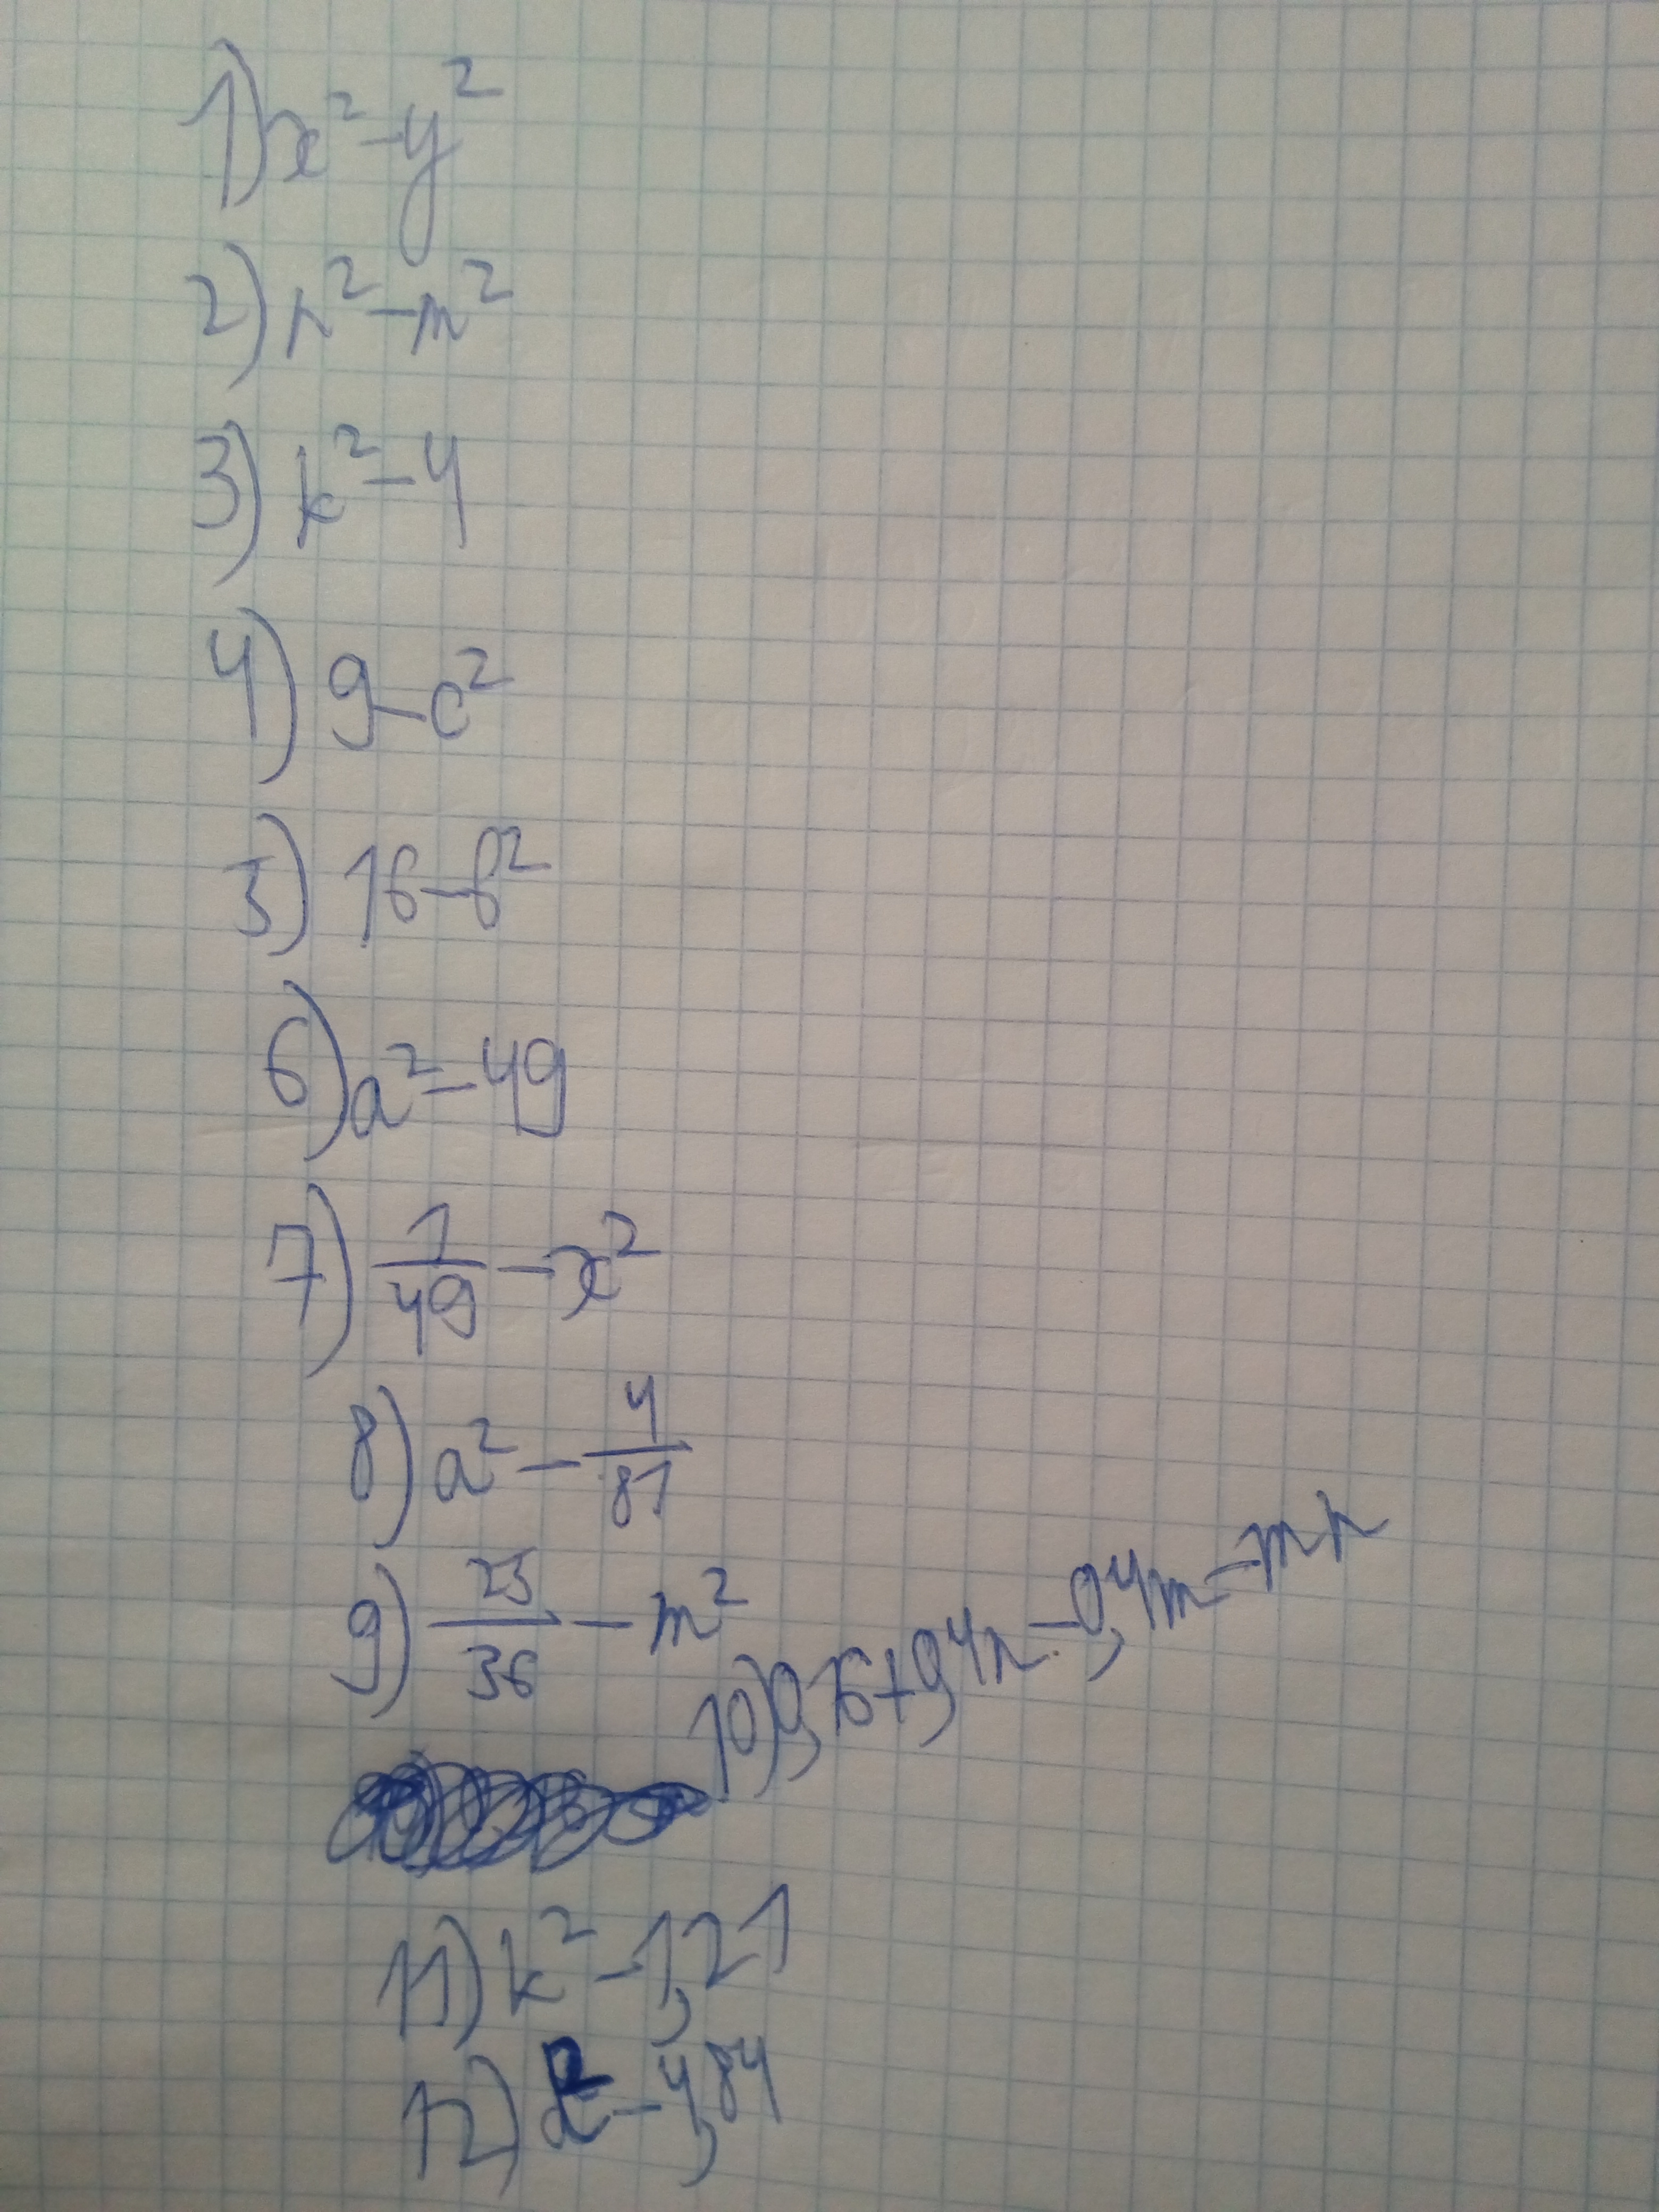 1) x² - y²
2) n² - m²
3) k² - 4
4) 9 - c²
5) 16 - b²
6) a² - 49
7) 1/49 - x²
8) a² - 4/81
9) 25/36 - m²
10) 0,16 + 0,4n - 0,4m - mn
11) k² - 1,21
12) - 4,84